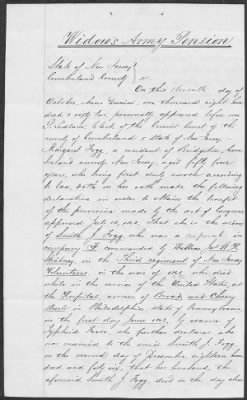 Widow's Army Pension
State of New Jersey
Cumberland County } ss.
On this eleventh day of
October, Anno Domini, one thousand eight hun
dred & sixty two personally appeared before me
Clerk of the County Court of the
County of Cumberland & State of New Jersey
Margaret Fogg, a resident of Bridgeton, Cum
berland County New Jersey, aged fifty four
years, who being first duly sworn according
to law, doth on her oath make the following
declaration in order to obtain the benefit
of the provisions made by the act of Congress
approved July 14, 1862: That she is the widow
of Smith J. Fogg who was a in
company F commanded by
in the Third regiment of New Jersey
Volunteers, in the war of 1861, who died
while in the service of the United States, at
the Hospital, corner of Broad and Cherry
Street in Philadelphia State of Pennsylvania
on the first day June 1862, by reason of
Typhoid Fever, she further declares she
was married to the said Smith J. Fogg
on the second day of December eighteen hun
dred and forty six, that her husband, the
aforesaid Smith J. Fogg, died on the day above